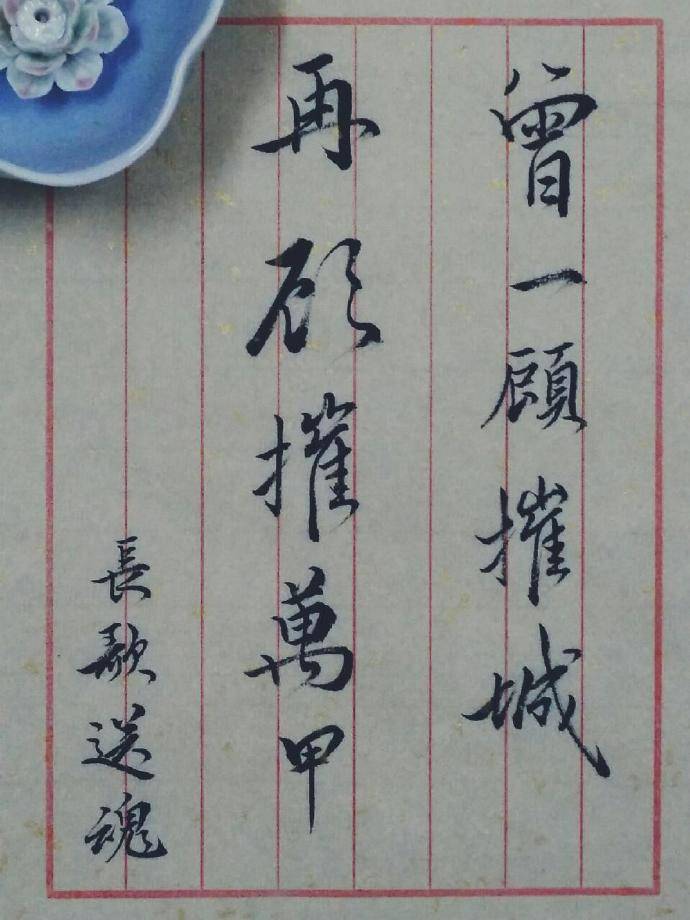 曾一顧摧城
再顾摧萬甲
長歌送魂